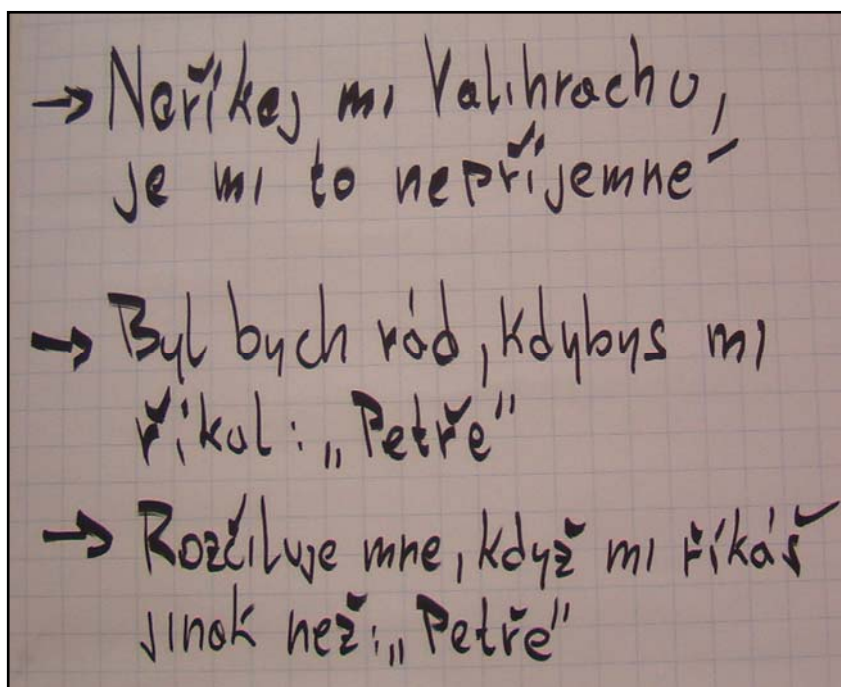 → Neříkej mi Valihrachu,
je mi to nepříjemné
→ Byl bych rád, kdybys mi
říkal: „Petře"
→ Rozčiluje mne, když mi říkáš
jinak než: „Petře"